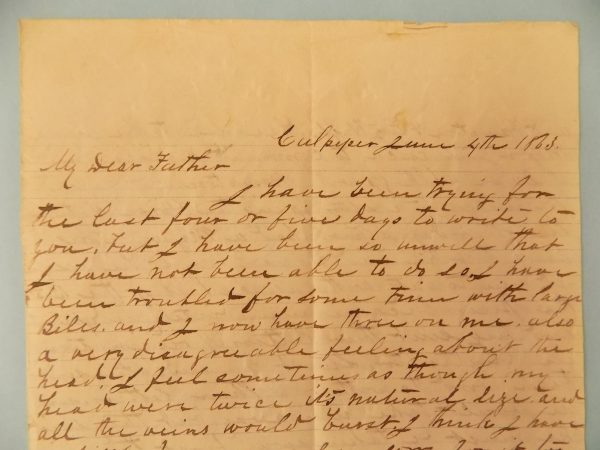 Culpeper June 4th 1863.
My Dear Father
I have been trying for
the last four or five days to write to
you. but I have been so unwell that
I have not been able to do so. I have
been troubled for some time with large
Biles. and I now have three on me. also
a very disagreeable feeling about the
head. I feel sometimes as though my
head were twice its natural size and
all the veins would burst. I think I have